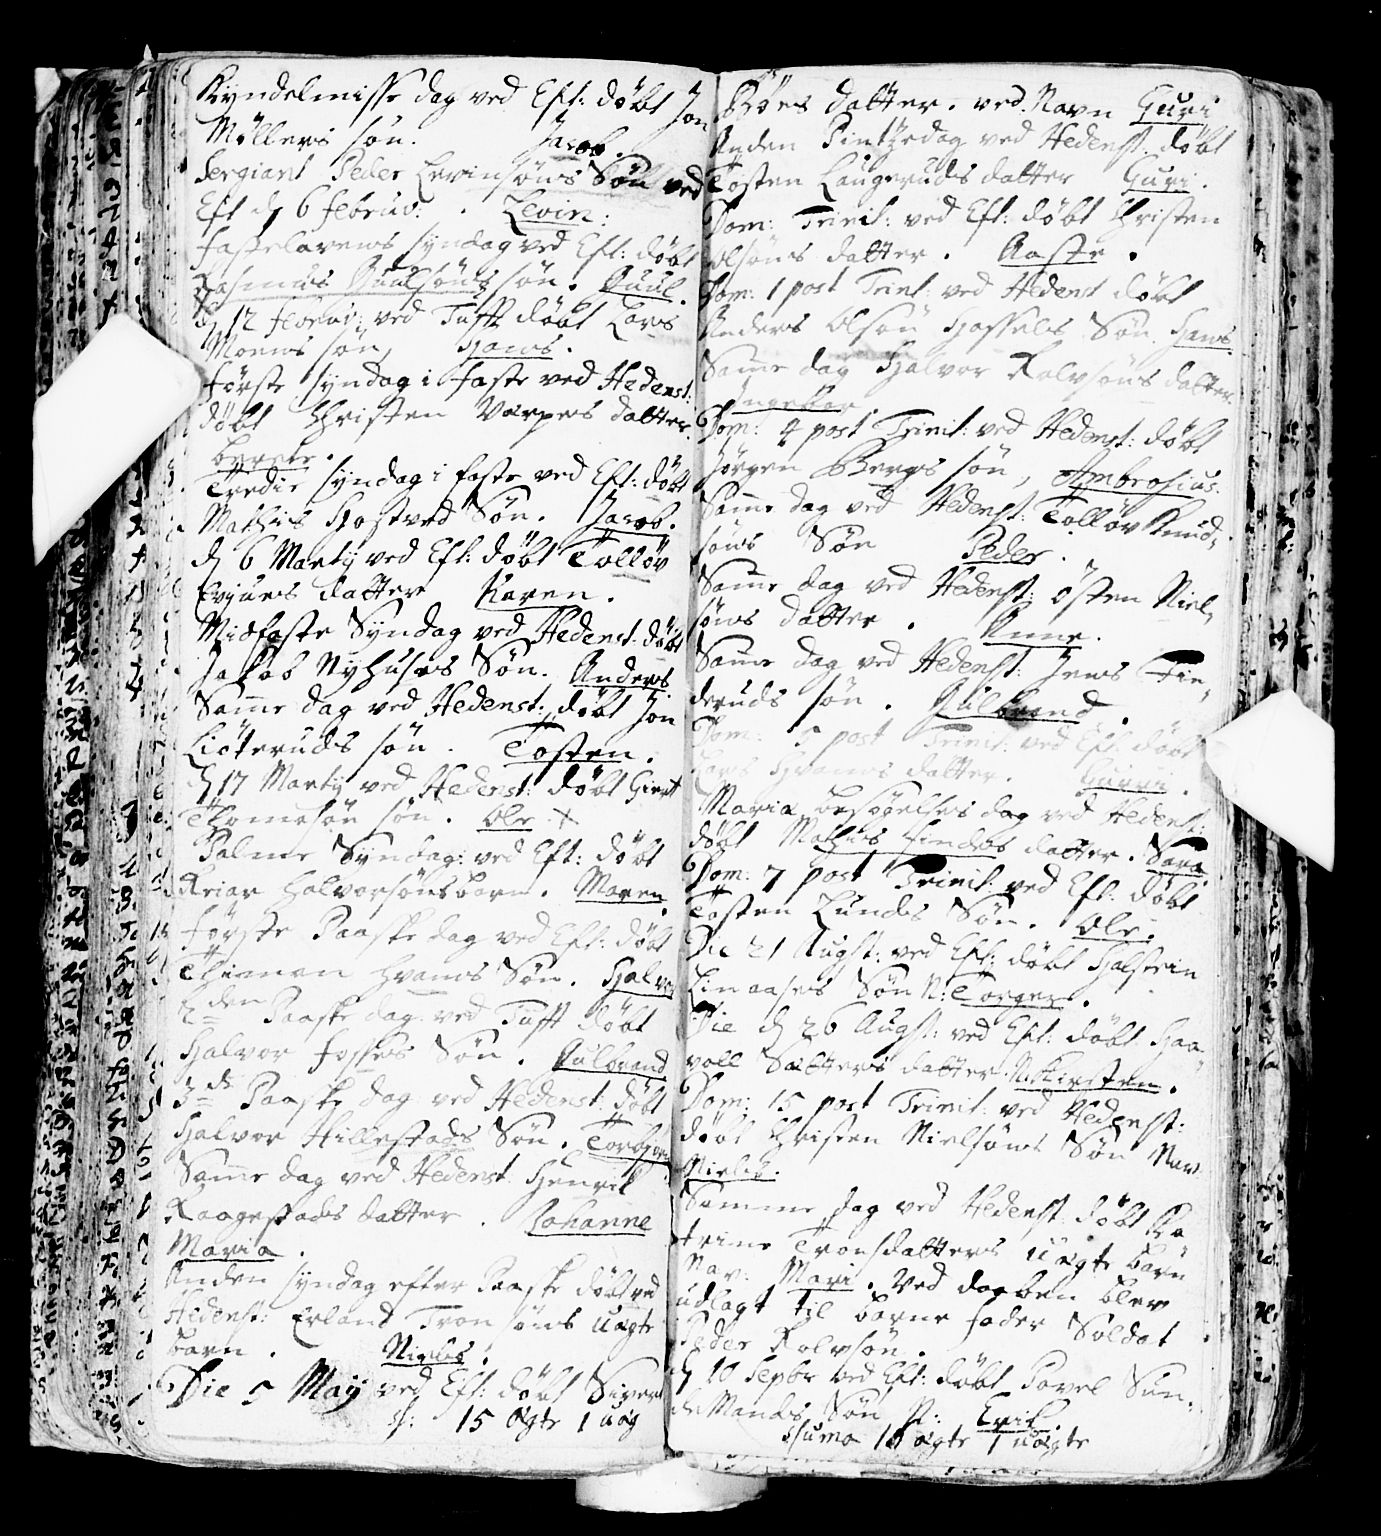 Kyndelmisse dag ved Eft: döbt Jon
Möllers sön. Jacob.
Sergiant Peder Levinsöns Sön ved
Eft d 6 februar: . Levin.
fastelavens syndag ved Eft: döbt
Rasmus Puulsöns sön. Puul.
d 12 febru: ved Tufft döbt Lars
Moens sön, Hans.
förste syndag i faste ved Hedenst:
döbt Christen Varpes datter.
berete.
Tredie syndag i faste ved Eft: döbt
Mathis Hostved Sön. Jacob.
d 6 Marty ved Eft: döbt Tollöv
Evjues datter Karen.
Midfaste Syndag ved Hedenst: döbt
Jakob Nyhuses Sön. Anders
Samme dag ved Hedenst: döbt Jon
Liöteruds sön. Tosten.
d 17 Marty ved Hedenst: döbt Giert
Thomesön sön. Ole.
Palme Syndag: ved Eft: döbt
Halvorsöns barn. Maren
förste Paaske dag ved Eft: döbt
Thimon Hvams Sön. Halvor
2den Paaske dag ved Tufft döbt
Halvor fosses Sön. Gulbrand
3de Paaske dag ved Hedenst: döbt
Halvor Hillestads Sön. Torbjörn
Samme dag ved Hedenst. Henrik
Kaagestads datter. Johanne
Maria.
Anden syndag efter Paaske döbt ved
Hedenst: Erland Tronsöns uægte
barn. Niels.
Die 5 May ved Eft: döbt Siver
s: 15 ægte 1 uæg
Böes datter. ved Navn Guri
Anden Pintzedag ved Hedenst: döbt
Tosten Laugeruds datter Guri.
Dom: Trinit: ved Eft: döbt Christen
Olsöns datter. Aaste.
Dom: 1 post Trint: ved Hedenst döbt
Anders Olsön Hassels Sön. Hans
Samme dag Halvor Rolvsöns datter
Ingebor
Dom: 4 post Trinit: ved Hedenst: döbt
Jörgen Bergs sön, Ambrosius.
Samme dag ved Hedenst: Tollöv Knud,
söns Sön Peder.
Samme dag ved Hedenst: Östen Niel,
söns datter. Anne.
Samme dag ved Hedenst: Jens Tin,
deruds sön. Gulbrand.
Dom: 5 post Trinit: ved Eft: döbt
Lars Hvams datter. Gurri.
Maria besögelses dag ved Hedenst:
döbt Mathias Lindes datter. Sara
Dom: 7 post Trinit: ved Eft: döbt
Tosten Lundes Sön. Ole.
Die 21 Augst: ved Eft: döbt Halstein
Linaases Sön N: Torger.
Die d 26 Augst: ved Eft: döbt Haa,
voll Sætters datter. N. Kirsten.
Dom: 15 post Trinit: ved Hedenst:
döbt Christen Nielsöns Sön Nav:
Niels.
Samme dag ved Hedenst. döbt Ka
trine Tronsdatters uægte barn
Nav: Mari. Ved daaben blev
udlagt til barne fader Soldat
Peder Rolvsön.
d 10 Sepbr ved Eft: döbt Povel Sun,
de Mands Sön N: Erik.
suma 16 ægte 1 uægte